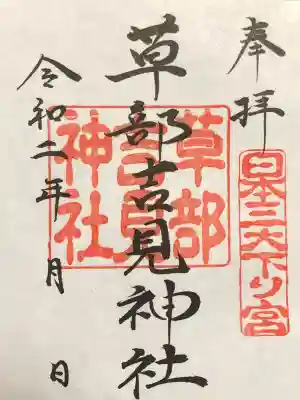 奉拝
日本三大下り宮
草部吉見神社
草部吉見神社
令和二年 月 日